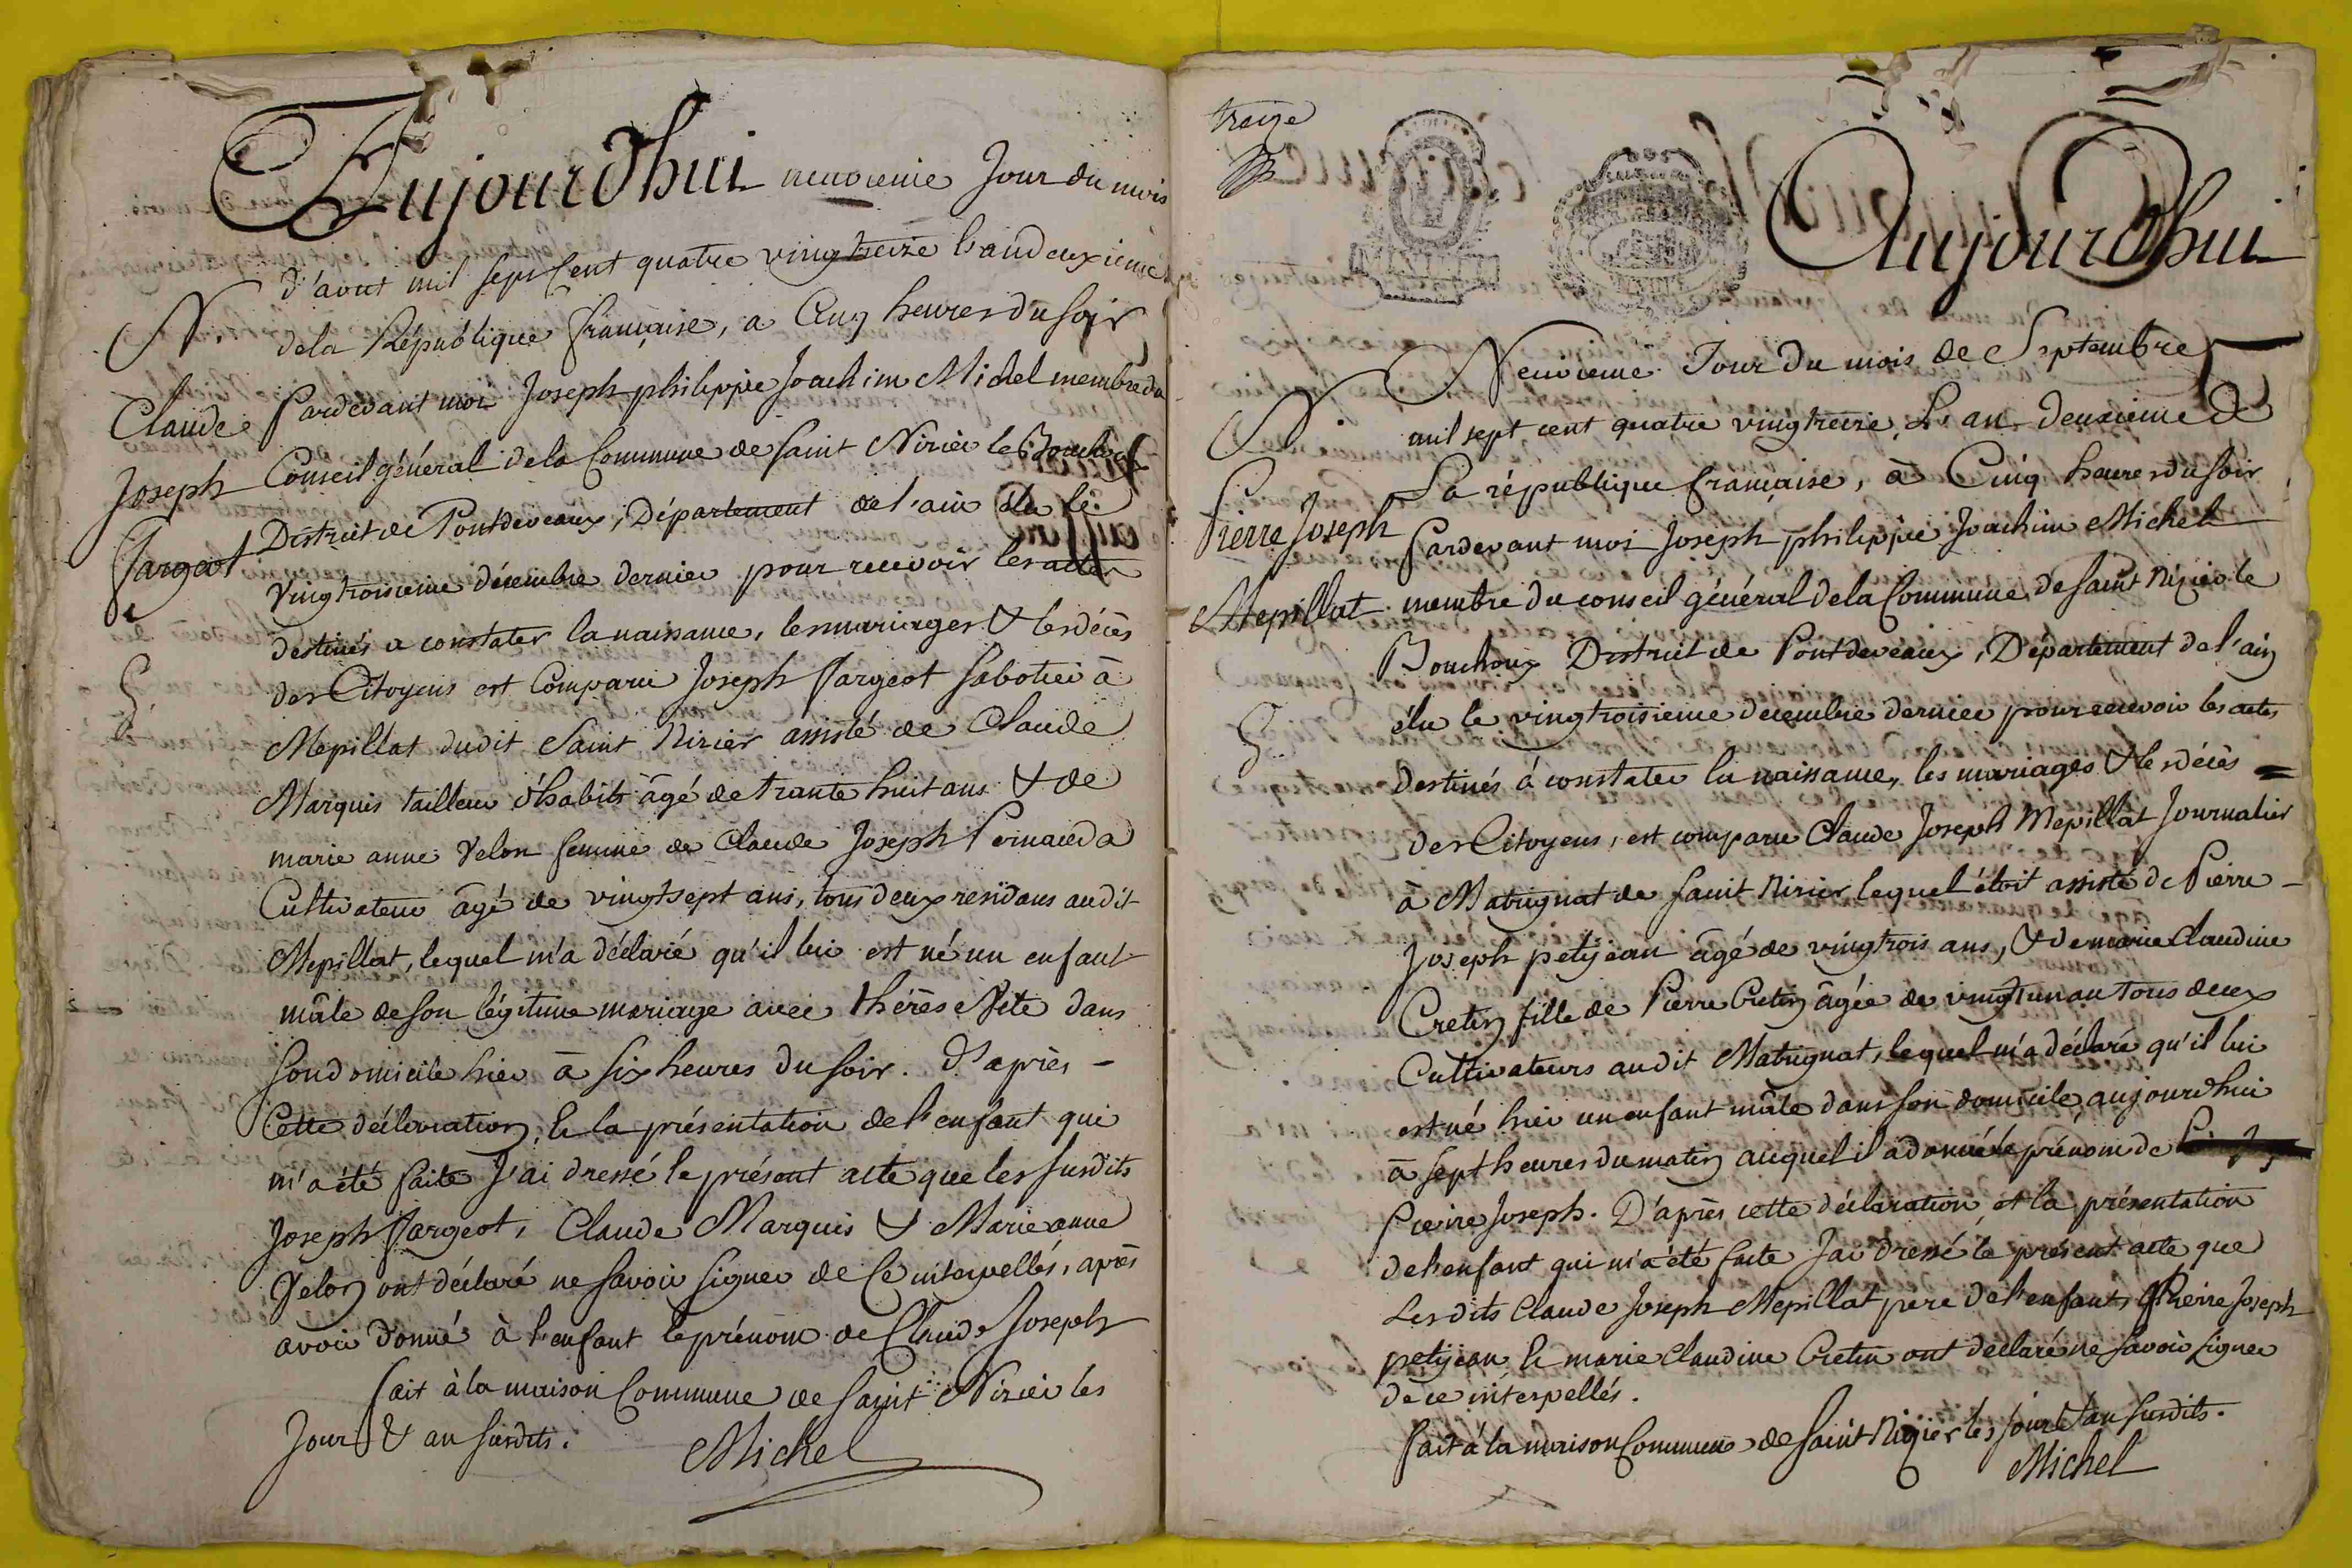 Aujourdhui neuvieme Jour du mois
d'aout mil sept Cent quatre vingtreize l'an deuxieme
dela République française, a Cinq heures du soir
Pardevant moi Joseph philippe Joachim Michel membre du
Conseil général dela Commune de saint Nizier le Bouchoux
District de Pontdevaux, Département de l'ain élu le
vingtroisieme décembre dernier pour recevoir les actes
destinés a constater la naissance, les mariages & les décès
des Citoyens est Comparu Joseph Fargeot sabotier à
Mepillat dudit Saint Nizier assisté de Claude
Marquis tailleur d'habits âgé de trante huit ans & de
marie anne Velon femme de Claude Joseph Pernauda
Cultivateur âgé de vingtsept ans, tous deux residans audit
Mepillat, lequel m'a déclaré qu'il lui est né un enfant
mâle de son légitime mariage avec thérèse Vite dans
son domicile hier à six heures du soir. D'après -
Cette déclaration, & la présentation de l'enfant qui
m'a été faite J'ai dressé le présent acte que les susdits
Joseph Fargeot, Claude Marquis & Marie anne
Velon ont déclaré ne savoir signer de ce interpellés, après
avoir donné à l'enfant le prénom de Claude Joseph
fait à la maison Commune de Saint Nizier les
Jour & an susdits.
Michel
N.
Claude
Joseph
Fargeot
treize
Aujourdhui
Neuvieme Jour du mois de Septembre
mil sept cent quatre vingtreize, L'an deuxieme de
La république française, à Cinq heures du soir
Pardevant moi Joseph philippe Joachim Michel
membre du conseil général dela Commune de saint Nizier le
Bouchoux District de Pontdevaux, Département de l'ain
élu le vingtroisieme decembre dernier pour recevoir les actes
destinés à constater la naissance, les mariages & les décès =
des Citoyens, est comparu Claude Joseph Mepillat Journalier
à Matrignat de saint Nizier lequel étoit assisté de Pierre -
Joseph petijean âgé de vingtrois ans, & de marie Claudine
Cretin fille de Pierre Cretin âgée de vingt un an tous deux
Cultivateurs audit Matrignat, lequel m'a déclaré qu'il lui
est né hier un enfant mâle dans son domicile aujourdhui
à sept heures du matin auquel il a donné le prénom de
Pierre Joseph. D'après cette déclaration et la présentation
de l'enfant qui m'a été faite J'ai dressé le présent acte que
Lesdits Claude Joseph Mepillat père de l'enfant, Pierre Joseph
petijean & marie Claudine Cretin ont déclaré ne savoir signer
de ce interpellés.
fait à la maison Commune de Saint Nizier les jour & an susdits.
Michel
N.
Pierre Joseph
Mepillat